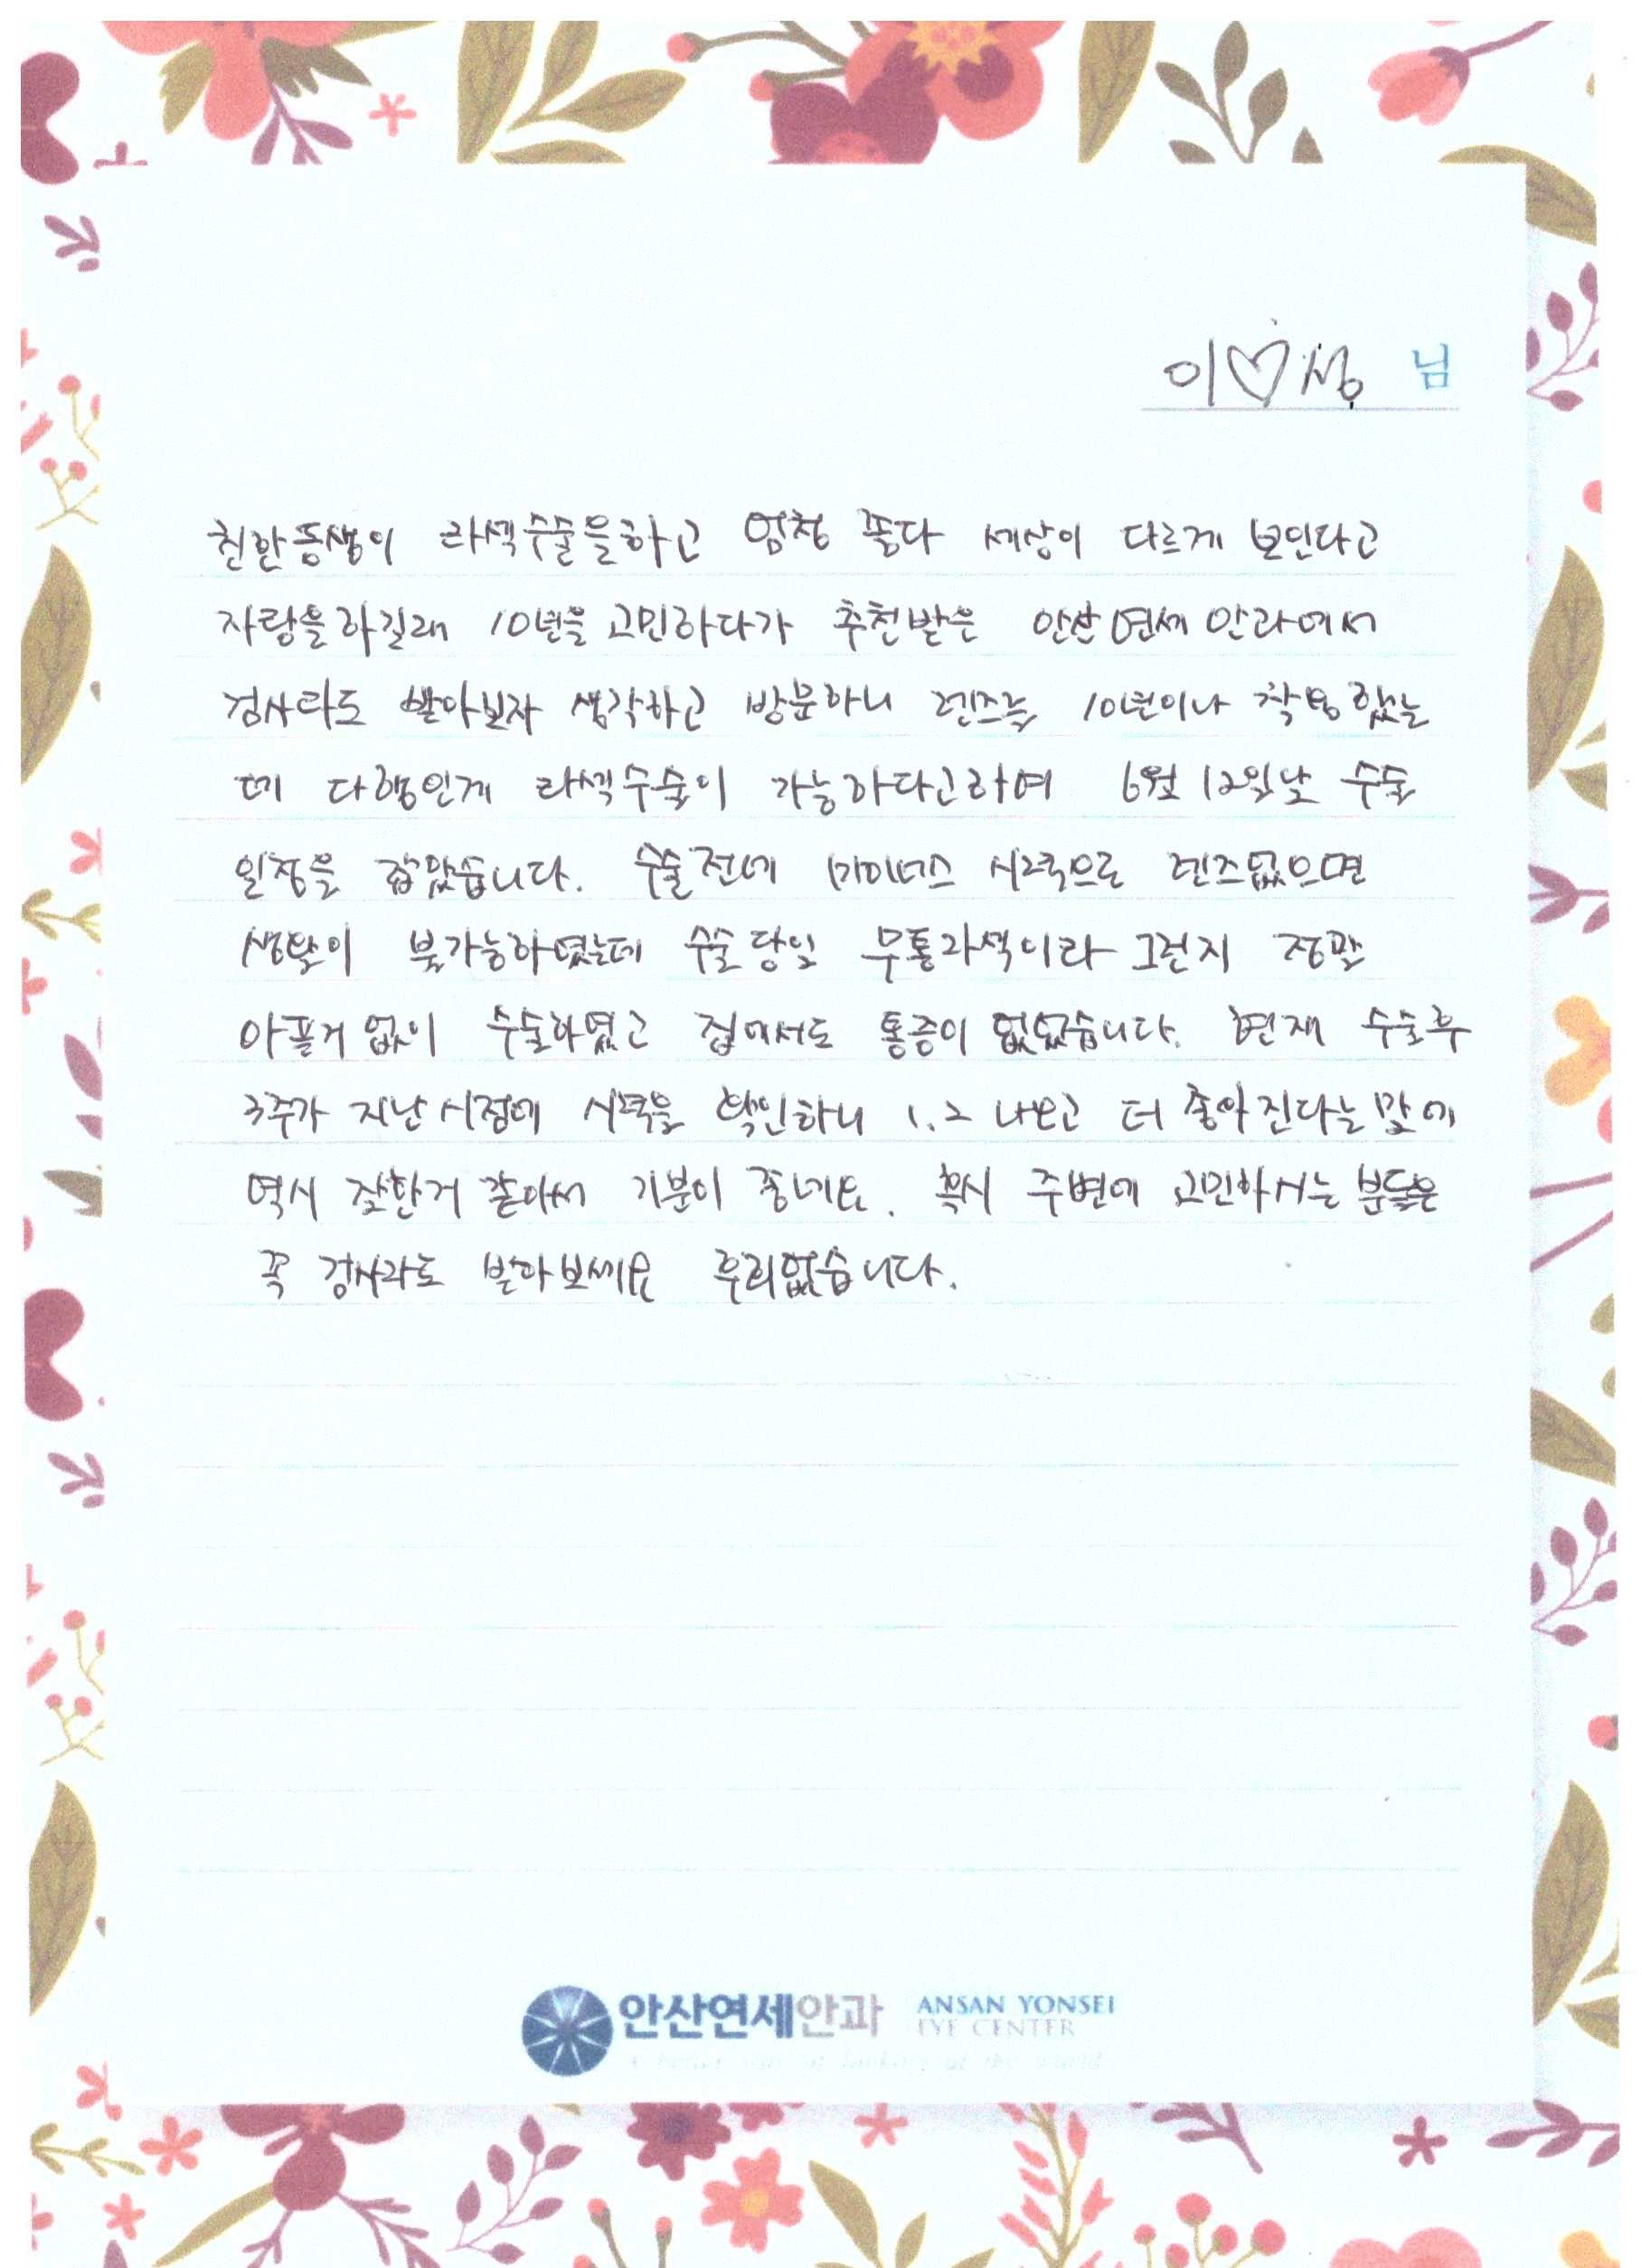 이♡성 님
친한동생이 라섹수술을하고 엄청 좋다 세상이 다르게 보인다고
자랑을하길래 10년을 고민하다가 추천받은 안산연세안과에서
검사라도 받아보자 생각하고 방문하니 렌즈를 10년이나 착용했는
데 다행인게 라섹수술이 가능하다고하여 6월 12일날 수술
일정을 잡았습니다. 수술전에 마이너스 시력으로 렌즈없으면
생활이 불가능하였는데 수술당일 무통라섹이라 그런지 정말
아픈거 없이 수술하였고 집에서도 통증이 없었습니다. 현재 수술후
3주가 지난시점에 시력을 확인하니 1.2 나오고 더 좋아진다는말에
역시 잘한거 같아서 기분이 좋네요. 혹시 주변에 고민하시는 분들은
꼭 검사라도 받아보세요 후회없습니다.
안산연세안과 ANSAN YONSEI
EYE CENTER